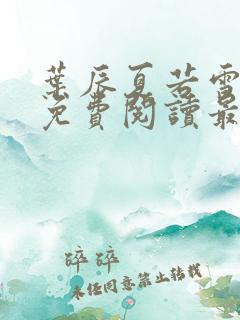 葉辰夏若雪
免費閱讀最
碎碎
未经同意禁止转载